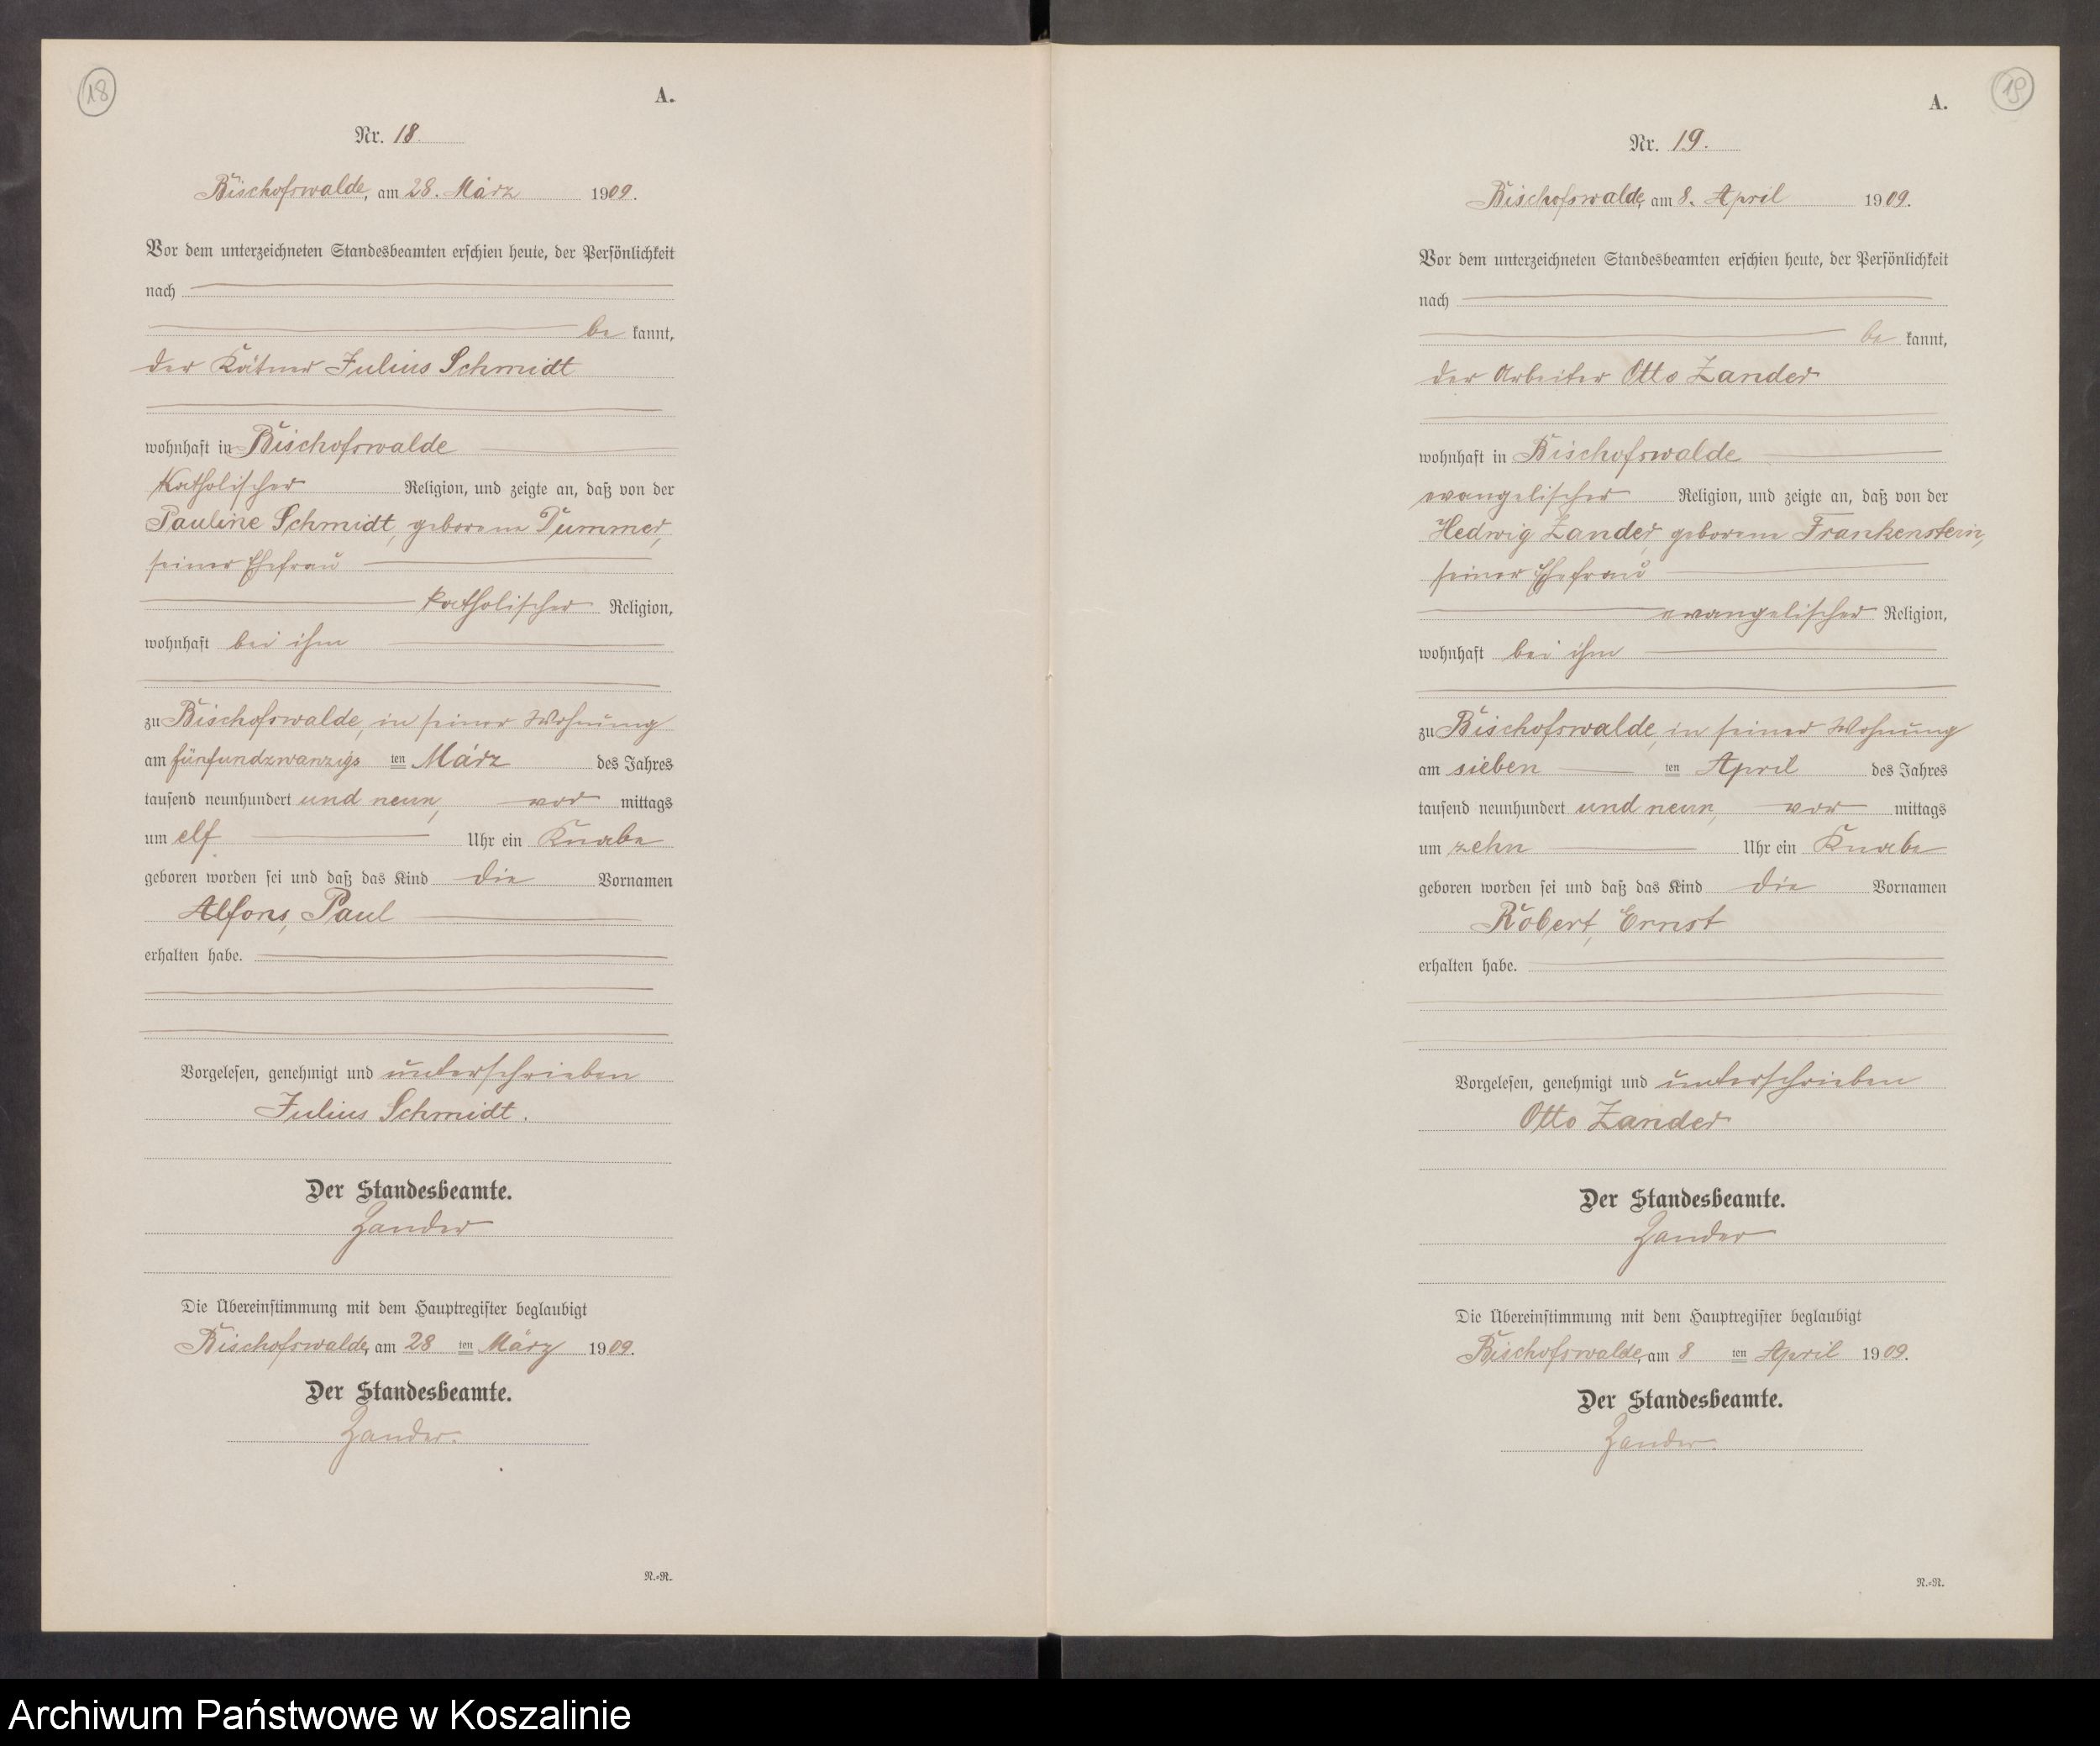 18
A.
Nr. 18.
Bischofswalde, am 28. März 1909.
Vor dem unterzeichneten Standesbeamten erschien heute, der Persönlichkeit
nach
be kannt,
der Kätner Julius Schmidt
wohnhaft in Bischofswalde
katholischer Religion, und zeigte an, daß von der
Pauline Schmidt, geborene Dummer,
seiner Ehefrau
katholischer Religion,
wohnhaft bei ihm
zu Bischofswalde, in seiner Wohnung
am fünfundzwanzigs ten März des Jahres
tausend neunhundert und neun, vor mittags
um elf Uhr ein Knabe
geboren worden sei und daß das Kind die Vornamen
Alfons, Paul
erhalten habe.
Vorgelesen, genehmigt und unterschrieben
Julius Schmidt.
Der Standesbeamte.
Zander
Die Übereinstimmung mit dem Hauptregister beglaubigt
Bischofswalde, am 28 ten März 1909.
Der Standesbeamte.
Zander.
N.=R.
19
A.
Nr. 19.
Bischofswalde, am 8. April 1909.
Vor dem unterzeichneten Standesbeamten erschien heute, der Persönlichkeit
nach
be kannt,
der Arbeiter Otto Zander
wohnhaft in Bischofswalde
evangelischer Religion, und zeigte an, daß von der
Hedwig Zander, geborene Frankenstein,
seiner Ehefrau
evangelischer Religion,
wohnhaft bei ihm
zu Bischofswalde, in seiner Wohnung
am sieben ten April des Jahres
tausend neunhundert und neun, vor mittags
um zehn Uhr ein Knabe
geboren worden sei und daß das Kind die Vornamen
Robert, Ernst
erhalten habe.
Vorgelesen, genehmigt und unterschrieben
Otto Zander
Der Standesbeamte.
Zander
Die Übereinstimmung mit dem Hauptregister beglaubigt
Bischofswalde, am 8 ten April 1909.
Der Standesbeamte.
Zander.
N.=R.
Archiwum Państwowe w Koszalinie